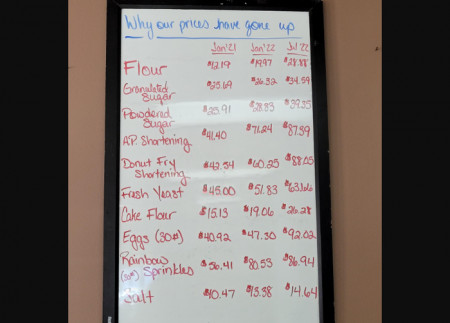 Why our prices have gone up
Jan'21 Jan'22 Jul'22
Flour $12.19 $19.97 $28.88
Granulated
Sugar $25.69 $26.32 $34.59
Powdered
Sugar $23.91 $28.83 $39.25
A.P. Shortening $41.40 $71.24 $87.59
Donut Fry
Shortening $42.54 $60.25 $88.05
Fresh Yeast $45.00 $51.83 $63.66
Cake Flour $15.13 $19.06 $26.28
Eggs (30#) $40.92 $47.30 $92.02
Rainbow
Sprinkles $56.41 $80.53 $86.94
Salt $10.47 $13.38 $14.64